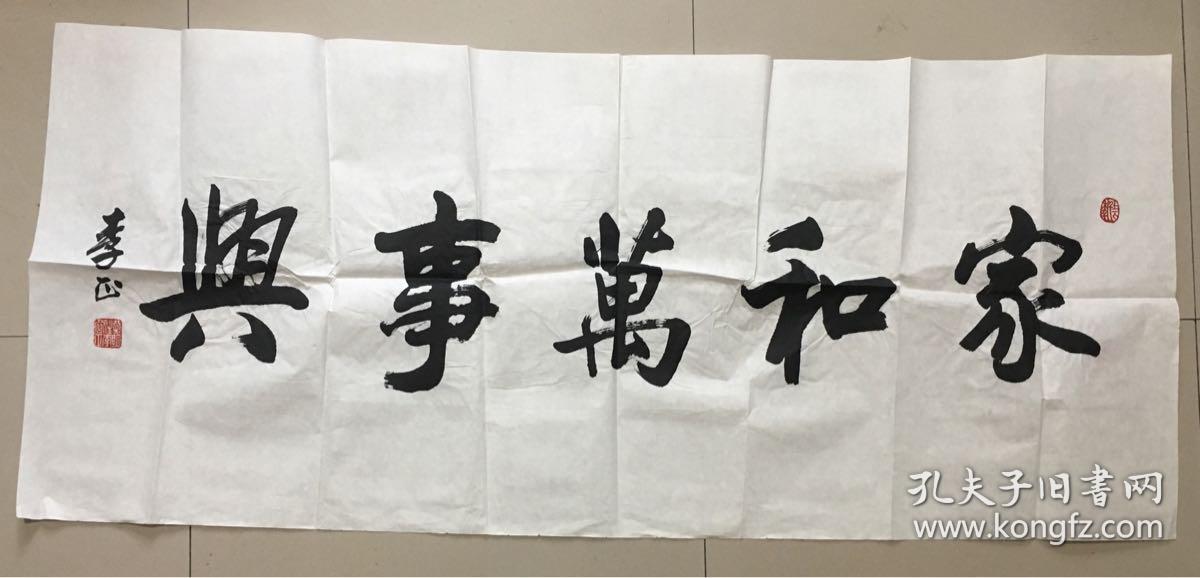 家和萬事興
李正
孔夫子旧書网
www.kongfz.com